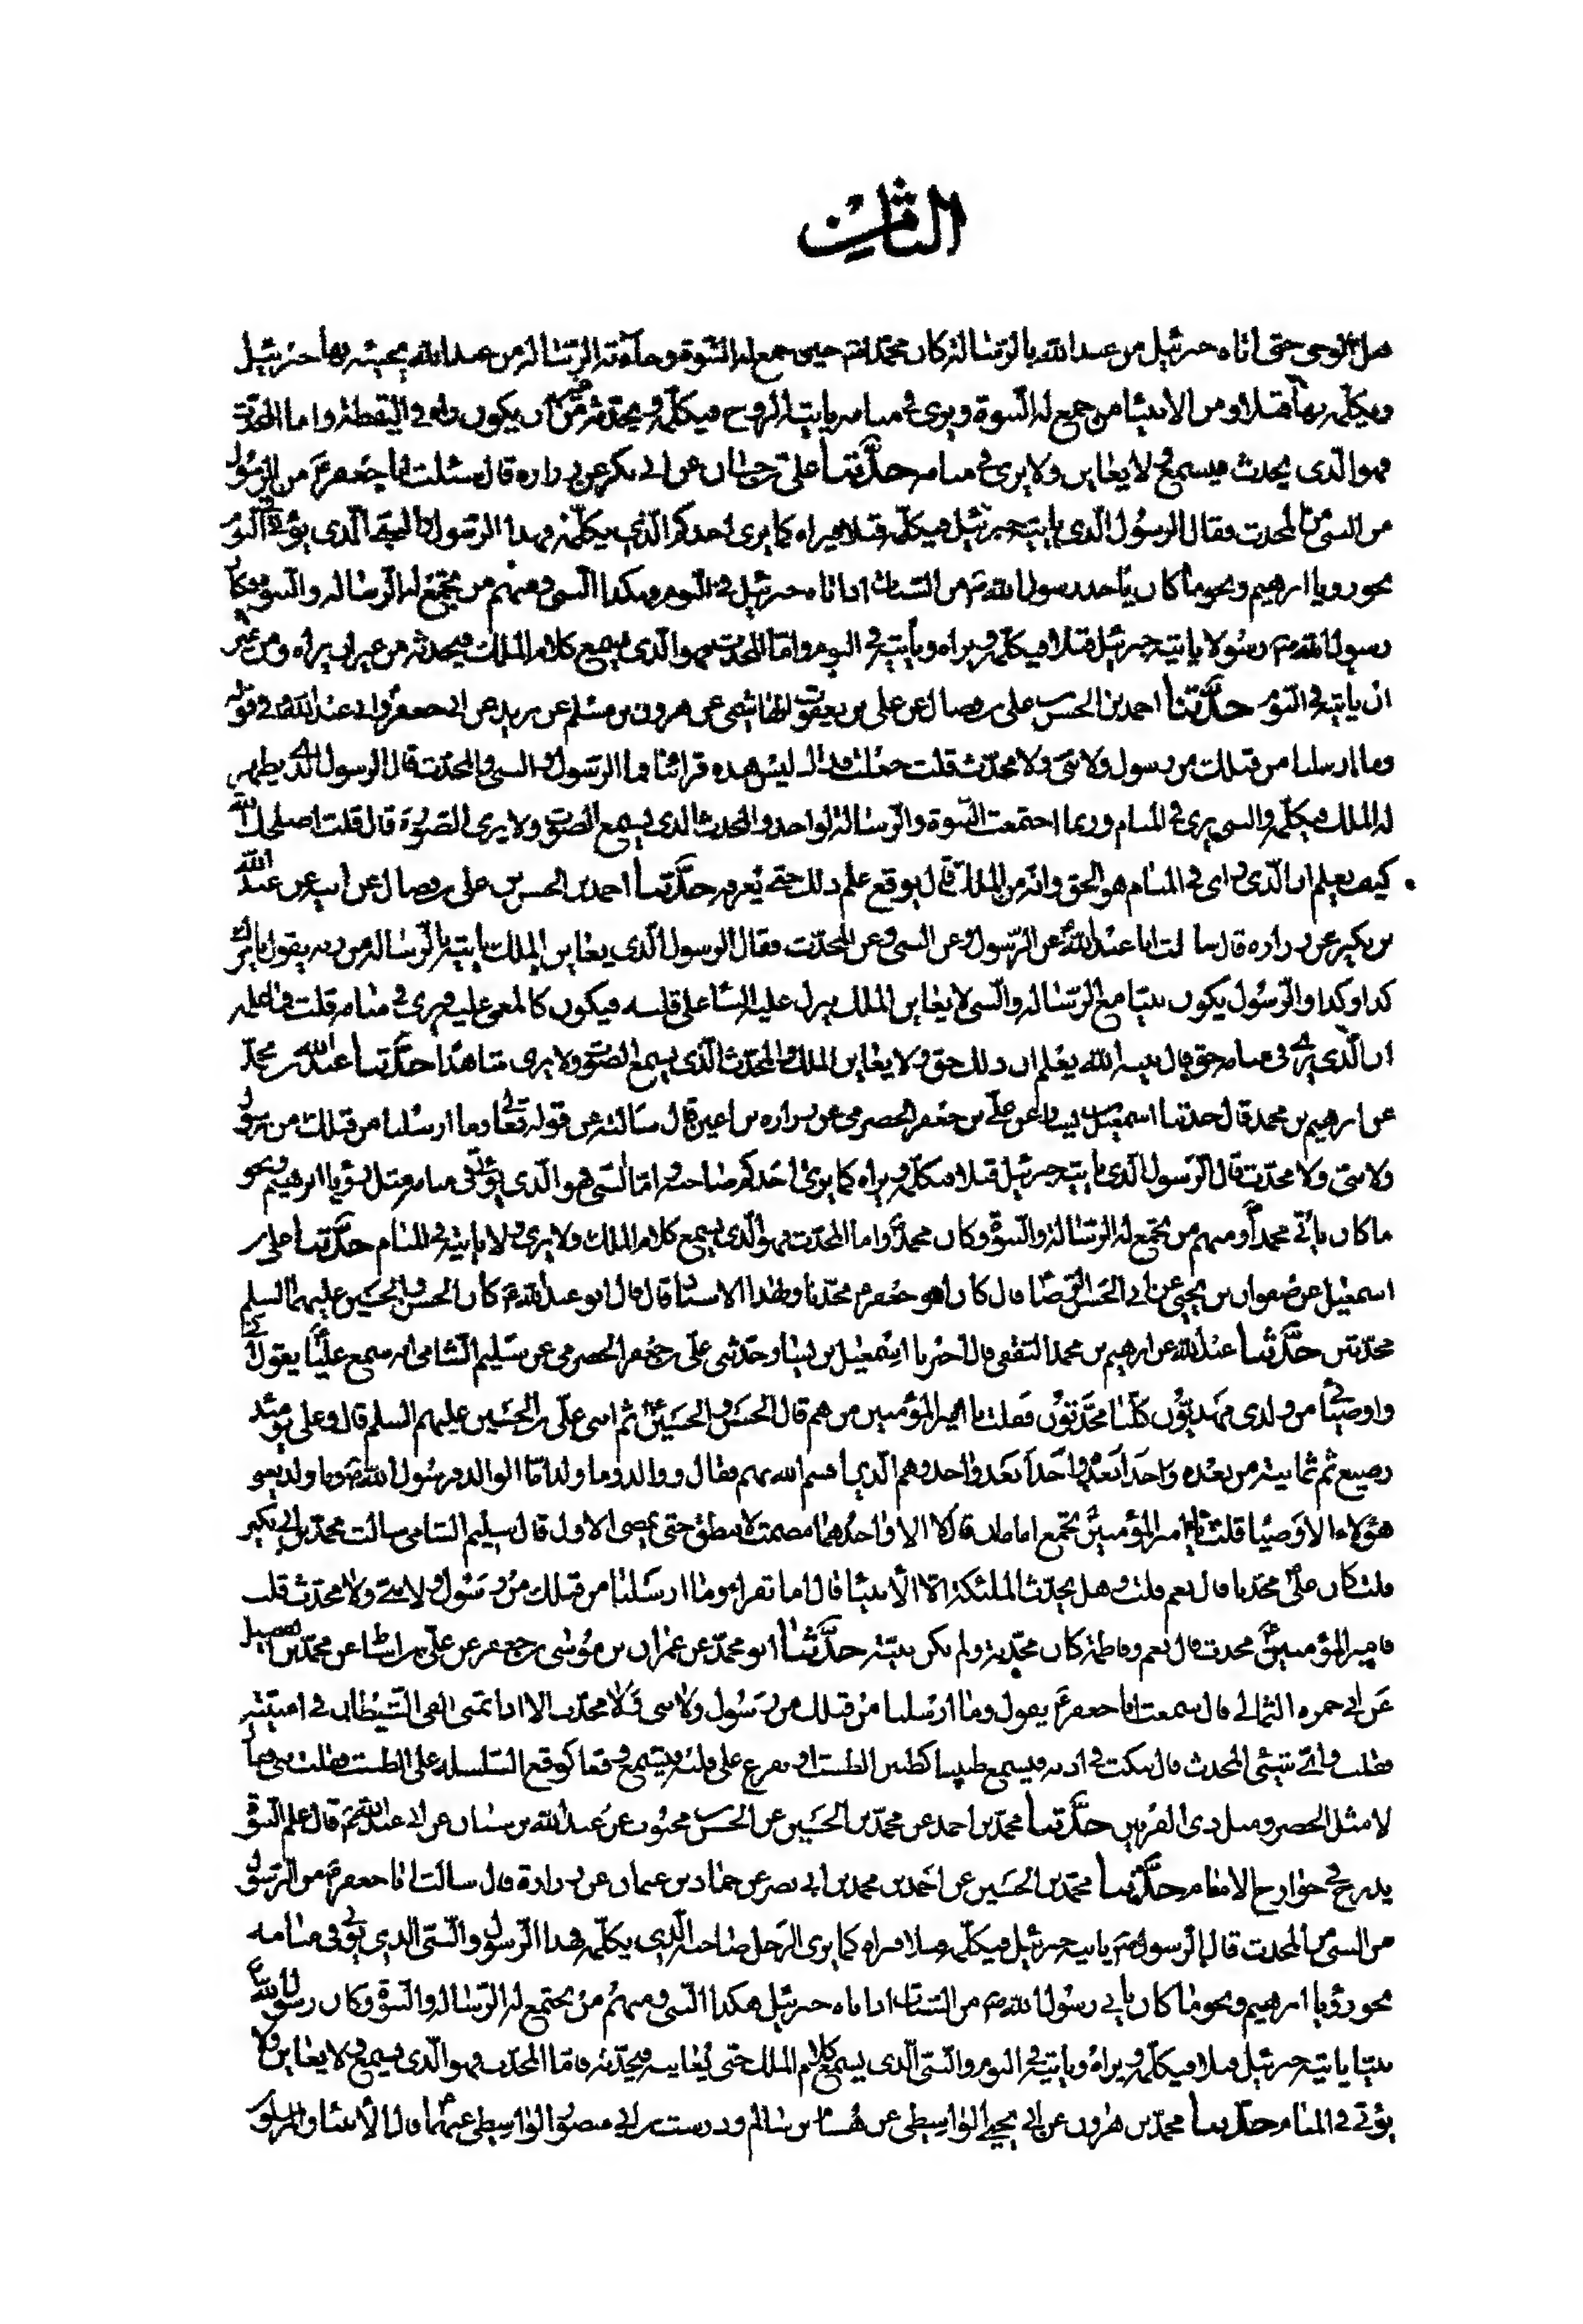 الثامن
قبل الوحى حتى اتاه جبرئيل من عند الله بالرسالة كان محمد حين جمع له النبوة وجاءته الرسالة من عند الله يجيئه بها جبرئيل
ويكلمه بها قبلا ومن الانبياء من جمع له النبوة ويرى فى منامه ياتيه الروح فيكلمه ويحدثه من غير ان يكون راه فى اليقظة واما المحدث
فهو الذى يحدث فيسمع ولا يعاين ولا يرى فى منامه حدثنا على بن حسان عن ابى بكر عن زراره قال سئلت ابا جعفر ع من الرسول
من النبى من المحدث فقال الرسول الذى ياتيه جبرئيل فيكلمه قبلا فيراه كما يرى احدكم الذى يكلمه فهذا الرسول والنبى الذى يؤتى فى النوم
نحو رويا ابرهيم ونحو ما كان ياخذ رسول الله ص من السبات اذا اتاه جبرئيل فى النوم وهكذا النبى ومنهم من يجتمع له الرساله والنبوة فكان
رسول الله ص رسولا ياتيه جبرئيل قبلا فيكلمه ويراه وياتيه فى النوم واما المحدث فهو الذى يسمع كلام الملك فيحدثه من غير ان يراه ومن غير
ان ياتيه فى النوم حدثنا احمد بن الحسن بن على بن فضال عن على بن يعقوب الهاشمى عن هرون بن مسلم عن بريد عن ابى جعفر وابى عبد الله فى قوله
وما ارسلنا من قبلك من رسول ولا نبى ولا محدث قلت جعلت فداك ليس هذه قرائتنا فما الرسول والنبى والمحدث قال الرسول الذى يظهر
له الملك فيكلمه والنبى يرى فى المنام وربما اجتمعت النبوة والرسالة لواحد والمحدث الذى يسمع الصوت ولا يرى الصورة قال قلت اصلحك الله
كيف يعلم ان الذى راى فى المنام هو الحق وانه من الملك قال يوقع علم ذلك حتى يعرفه حدثنا احمد بن الحسن بن على بن فضال عن ابيه عن عبد الله
بن بكير عن زراره قال سالت ابا عبد الله ع عن الرسول وعن النبى وعن المحدث فقال الرسول الذى يعاين الملك ياتيه بالرسالة من ربه يقول يامرك
كذا وكذا والرسول يكون نبيا مع الرسالة والنبى لا يعاين الملك ينزل عليه النبأ على قلبه فيكون كالمغمى عليه فيرى فى منامه قلت فما علمه
ان الذى يرى فى منامه حق قال يبينه الله يعلم ان ذلك حق ولا يعاين الملك والمحدث الذى يسمع الصوت ولا يرى شاهدا حدثنا عبد الله بن محمد
عن ابرهيم بن محمد قال حدثنا اسمعيل بن يسار عن على بن جعفر الحضرمى عن زراره بن اعين قال سالته عن قوله تعالى وما ارسلنا من قبلك من رسول
ولا نبى ولا محدث قال الرسول الذى ياتيه جبرئيل قبلا فيكلمه ويراه كما يرى احدكم صاحبه واما النبى فهو الذى يؤتى فى منامه مثل رؤيا ابرهيم ونحو
ما كان ياتى محمدا ومنهم من يجتمع له الرسالة والنبوة وكان محمد واما المحدث فهو الذى يسمع كلام الملك ولا يرى ولا ياتيه فى المنام حدثنا على بن
اسمعيل عن صفوان بن يحيى عن ابى الحسن الرضا قال كان ابو جعفر ع محدثا وبهذا الاسناد قال قال ابو عبد الله ع كان الحسن والحسين عليهما السلم
محدثين حدثنا عبد الله عن ابرهيم بن محمد الثقفى قال اخبرنا اسمعيل بن يسار وحدثنى على بن جعفر الحضرمى عن سليم الشامى انه سمع عليا يقول انى
واوصيائى من ولدى مهديون كلنا محدثون فقلت يا امير المؤمنين من هم قال الحسن والحسين ثم ابنى على بن الحسين عليهم السلم قال وعلى يومئذ
رضيع ثم ثمانية من بعده واحدا بعد واحد وهم الذين اقسم الله بهم فقال ووالد وما ولد اما الوالد فرسول الله ص وما ولد يعنى
هؤلاء الاوصيا قلت يا امير المؤمنين يجتمع امامان قال لا الا واحدهما مصمت لا ينطق حتى يمضى الاول قال سليم الشامى سالت محمد بن ابى بكر
قلت كان على محدثا قال نعم قلت وهل يحدث الملئكة الا الانبياء قال اما تقراء وما ارسلنا من قبلك من رسول ولا نبى ولا محدث قلت
فامير المؤمنين محدث قال نعم وفاطمة كان محدثة ولم تكن نبية حدثنا ابو محمد عن عمران بن موسى بن جعفر عن على بن اسباط عن محمد بن الفضيل
عن ابى حمزه الثمالى قال سمعت ابا جعفر ع يقول وما ارسلنا من قبلك من رسول ولا نبى ولا محدث الا اذا تمنى القى الشيطان فى امنيته
فقلت واى شيئى المحدث قال ينكت فى اذنه فيسمع طنينا كطنين الطست او يقرع على قلبه فيسمع وقعا كوقع السلسلة على الطست فقلت نبى قال
لا مثل الخضر ومثل ذى القرنين حدثنا محمد بن احمد عن محمد بن الحسين عن الحسن بن محبوب عن عبد الله بن سنان عن ابى عبد الله ع قال علم النبوة
يدرج فى جوارح الامام حدثنا محمد بن الحسين عن احمد بن محمد بن ابى نصر عن حماد بن عثمان عن زرارة قال سالت ابا جعفر ع من الرسول
من النبى من المحدث قال الرسول ياتيه جبرئيل فيكلمه قبلا فيراه كما يرى الرجل صاحبه الذى يكلمه فهذا الرسول والنبى الذى يؤتى فى منامه
نحو رؤيا ابرهيم ونحو ما كان ياتى رسول الله ص من السبات اذا اتاه جبرئيل هكذا النبى ومنهم من يجتمع له الرسالة والنبوة وكان رسول الله
نبيا ياتيه جبرئيل قبلا فيكلمه ويراه وياتيه فى النوم والنبى الذى يسمع كلام الملك حتى يعاينه فيحدثه فاما المحدث فهو الذى يسمع ولا يعاين ولا
يؤتى فى المنام حدثنا محمد بن هرون عن ابى يحيى الواسطى عن هشام بن سالم ودرست بن ابى منصور الواسطى عنهما قالا الانبياء والمرسلون